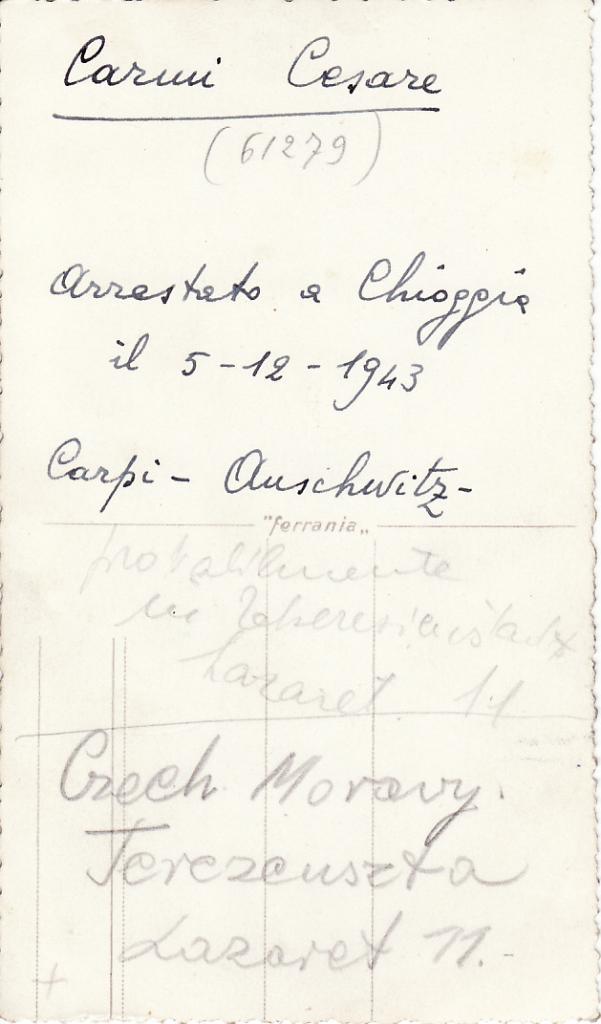 Carmi Cesare
(61279)
Arrestato a Chioggia
il 5-12-1943
Carpi - Auschwitz -
"ferrania"
probabilmente
in Theresienstadt
Lazaret 11
Czech Moravy.
Terezenszta
Lazaret 11.-